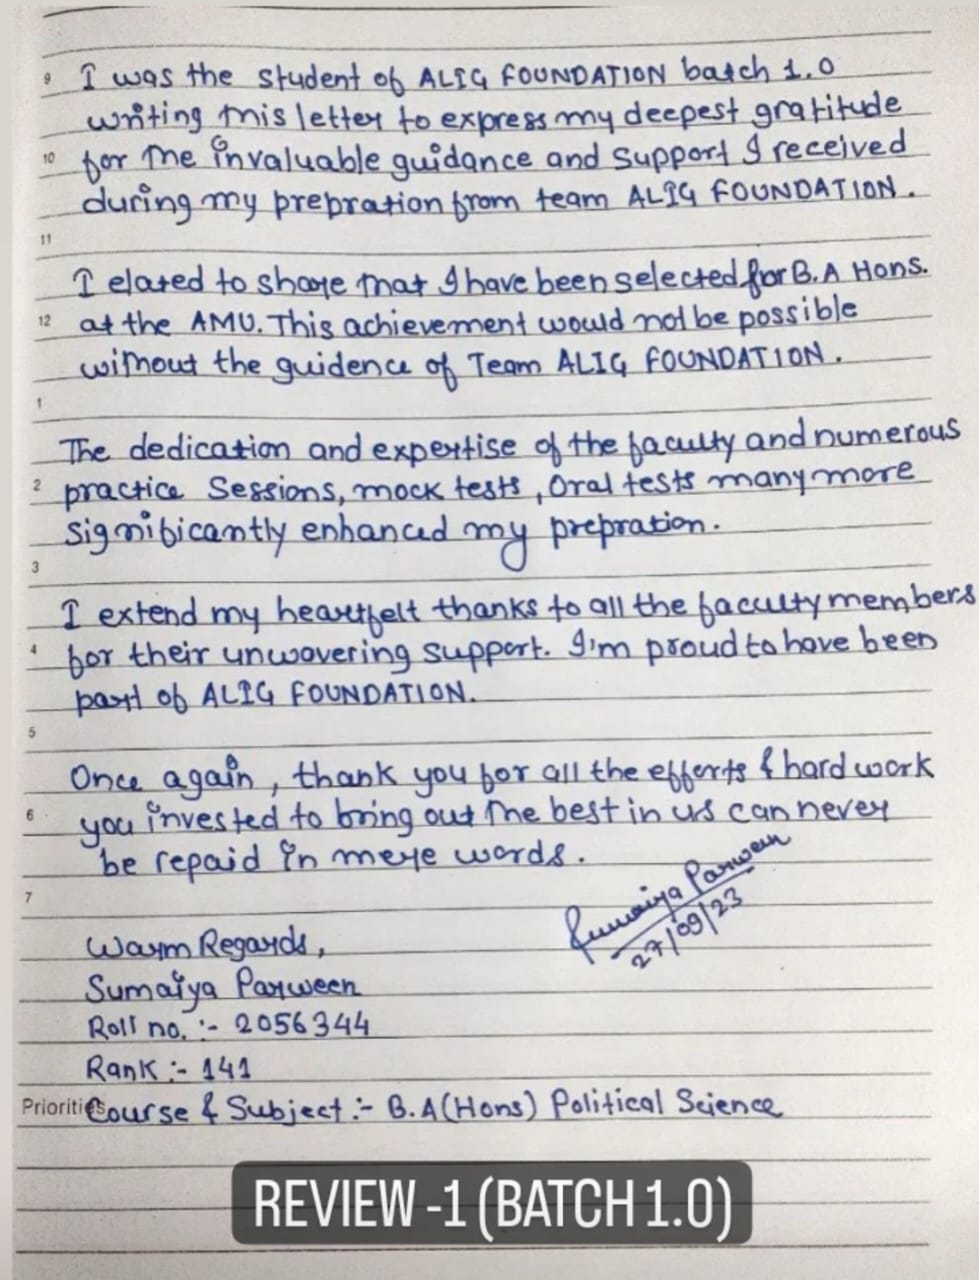 9 I was the student of ALIG FOUNDATION batch 1.0
writing this letter to express my deepest gratitude
10 for the invaluable guidance and support I received
during my prepration from team ALIG FOUNDATION.
11
I elated to share that I have been selected for B.A Hons.
12 at the AMU. This achievement would not be possible
without the guidence of Team ALIG FOUNDATION.
1
The dedication and expertise of the faculty and numerous
2 practice Sessions, mock tests, Oral tests many more
significantly enhanced my prepration.
3
I extend my heartfelt thanks to all the faculty members
4 for their unwavering support. I'm proud to have been
part of ALIG FOUNDATION.
5
Once again, thank you for all the efforts & hard work
6 you invested to bring out the best in us can never
be repaid in mere words.
7
Sumaiya Parween
27/09/23
Warm Regards,
Sumaiya Parween
Roll no. :- 2056344
Rank :- 141
Priorities Course & Subject :- B.A (Hons) Political Science
REVIEW -1 (BATCH 1.0)